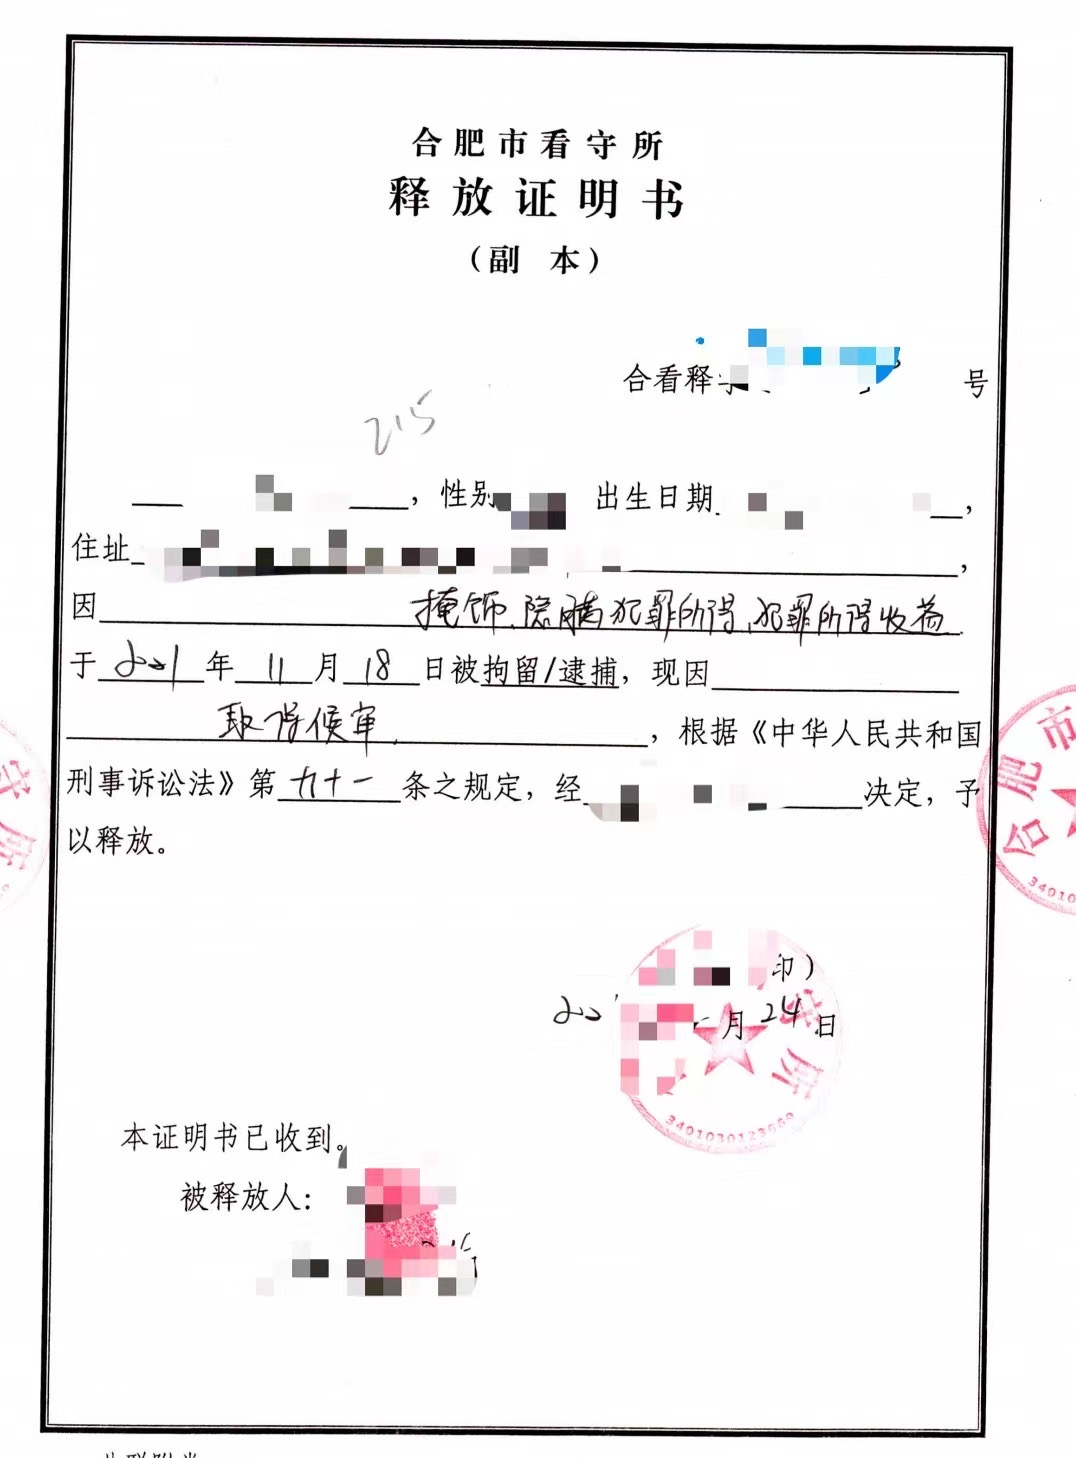 合肥市看守所
释放证明书
（副 本）
合看释 号
215
，性别 出生日期 ，
住址 ，
因 掩饰、隐瞒犯罪所得、犯罪所得收益
于 2021 年 11 月 18 日被拘留/逮捕，现因
取保候审 ，根据《中华人民共和国
刑事诉讼法》第 九十一 条之规定，经 决定，予
以释放。
印）
202 月 24 日
守所
3401030123669
合肥市
34010
守所
本证明书已收到。
被释放人：